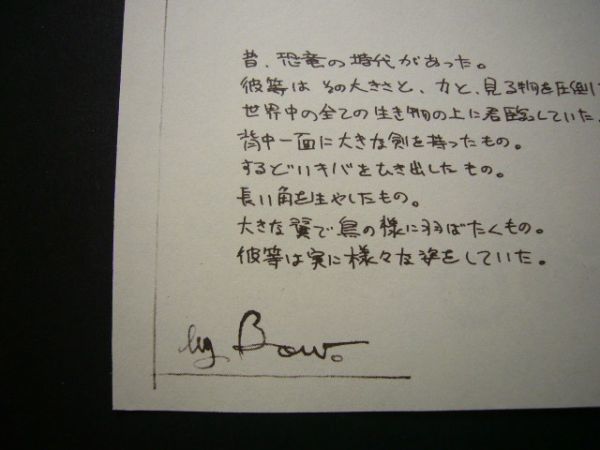 昔、恐竜の時代があった。
彼等はその大きさと、力と、見る物を圧倒し
世界中の全ての生き物の上に君臨していた。
背中一面に大きな剣を持ったもの。
するどいキバをむき出したもの。
長い角を生やしたもの。
大きな翼で鳥の様に羽ばたくもの。
彼等は実に様々な姿をしていた。
by Bow.